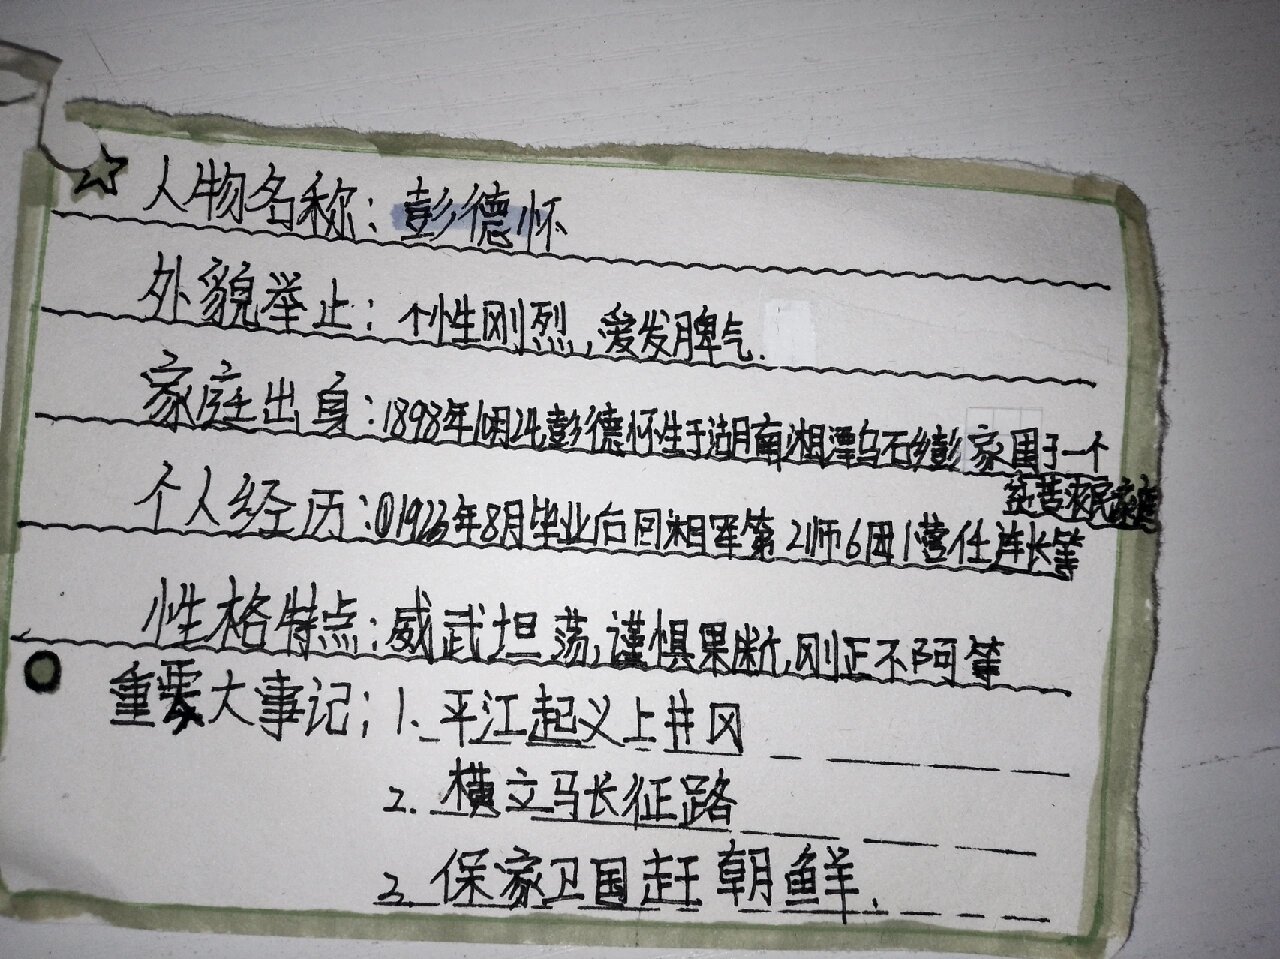 人物名称：彭德怀
外貌举止：个性刚烈，爱发脾气.
家庭出身：1898年10月24彭德怀生于湖南湘潭乌石乡彭家围于一个
贫苦农民家庭
个人经历：①1923年8月毕业后回湘军第2师6团1营任连长等
性格特点：威武坦荡,谨惧果断,刚正不阿等
重要大事记；1、平江起义上井冈
2.横立马长征路
3.保家卫国赶朝鲜.